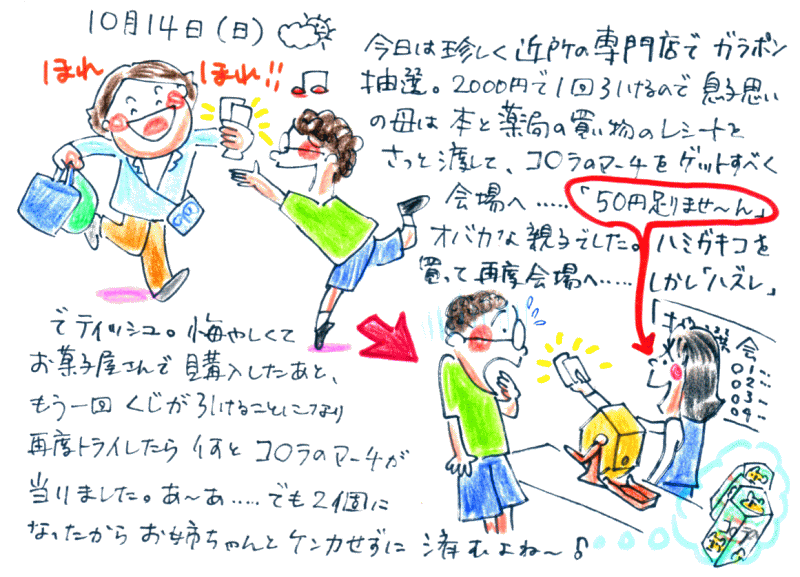 10月14日(日)
ほれ ほれ!!
今日は珍しく近所の専門店でガラポン
抽選。2000円で1回引けるので息子思い
の母は本と薬局の買い物のレシートを
さっと渡して、コ〇ラのマーチをゲットすべく
会場へ‥‥‥「50円足りませ〜ん」
オバカな親子でした。ハミガキコを
買って再度会場へ‥‥‥しかし「ハズレ」
でティッシュ。悔やしくて
お菓子屋さんで購入したあと、
もう一回くじが引けることになり
再度トライしたら なんと コ〇ラのマーチが
当りました。あ〜あ‥‥‥でも2個に
なったからお姉ちゃんとケンカせずに済むよね〜♪
会
01‥
02‥
03‥
04‥